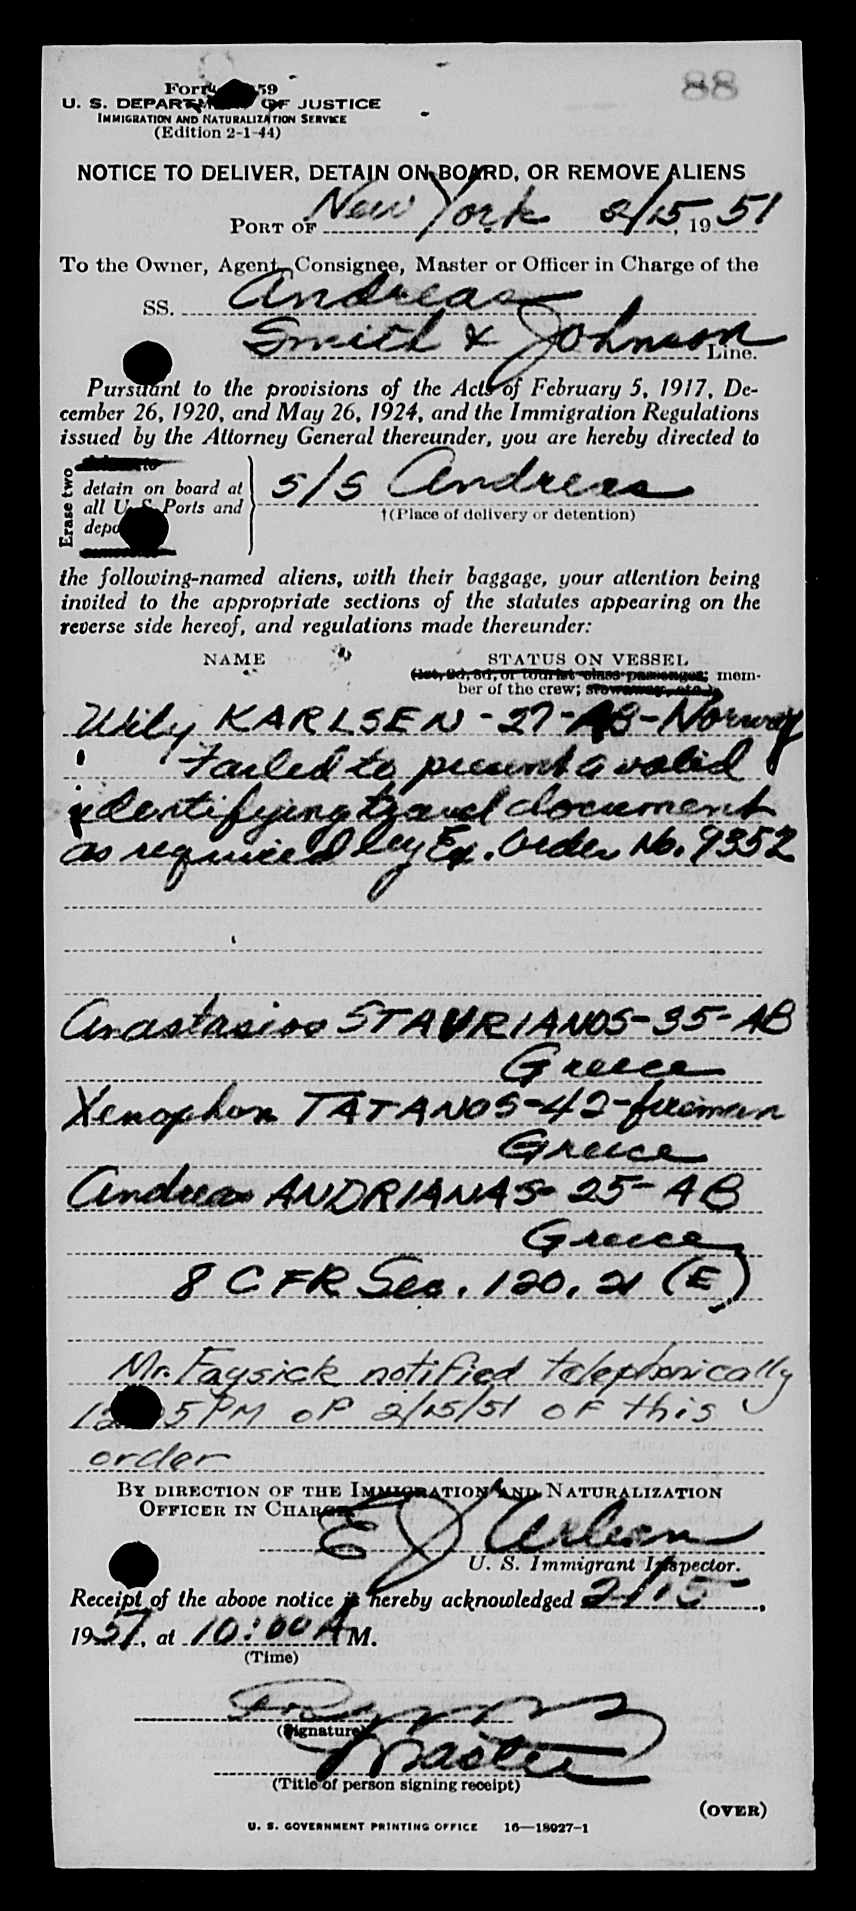 88
Form 259
U. S. DEPARTMENT OF JUSTICE
IMMIGRATION AND NATURALIZATION SERVICE
(Edition 2-1-44)
NOTICE TO DELIVER, DETAIN ON BOARD, OR REMOVE ALIENS
PORT OF New York 2/15, 1951
To the Owner, Agent, Consignee, Master or Officer in Charge of the
SS. Andreas
Smith & Johnson Line.
Pursuant to the provisions of the Acts of February 5, 1917, De-
cember 26, 1920, and May 26, 1924, and the Immigration Regulations
issued by the Attorney General thereunder, you are hereby directed to
Erase two
detain on board at
all U. S. Ports and
S/S Andreas
†(Place of delivery or detention)
the following-named aliens, with their baggage, your attention being
invited to the appropriate sections of the statutes appearing on the
reverse side hereof, and regulations made thereunder:
NAME STATUS ON VESSEL
(1st, 2d, 3d, or tourist class passenger; mem-
ber of the crew; stowaway, etc.)
Wily KARLSEN - 27 - AB - Norway
Failed to present a valid
identifying travel document
as required by Ex. Order No. 9352
Anastasios STAVRIANOS - 35 - AB
Greece
Xenophon TATANOS - 42 - fireman
Greece
Andreas ANDRIANAS - 25 - AB
Greece
8 CFR Sec. 120.21 (E)
Mr. Faysick notified telephonically
5 PM of 2/15/51 of this
order
BY DIRECTION OF THE IMMIGRATION AND NATURALIZATION
OFFICER IN CHARGE
E J
U. S. Immigrant Inspector.
Receipt of the above notice is hereby acknowledged 2/15,
1951, at 10:00 AM.
(Time)
(Signature)
Master
(Title of person signing receipt)
(OVER)
U. S. GOVERNMENT PRINTING OFFICE 16—18027-1